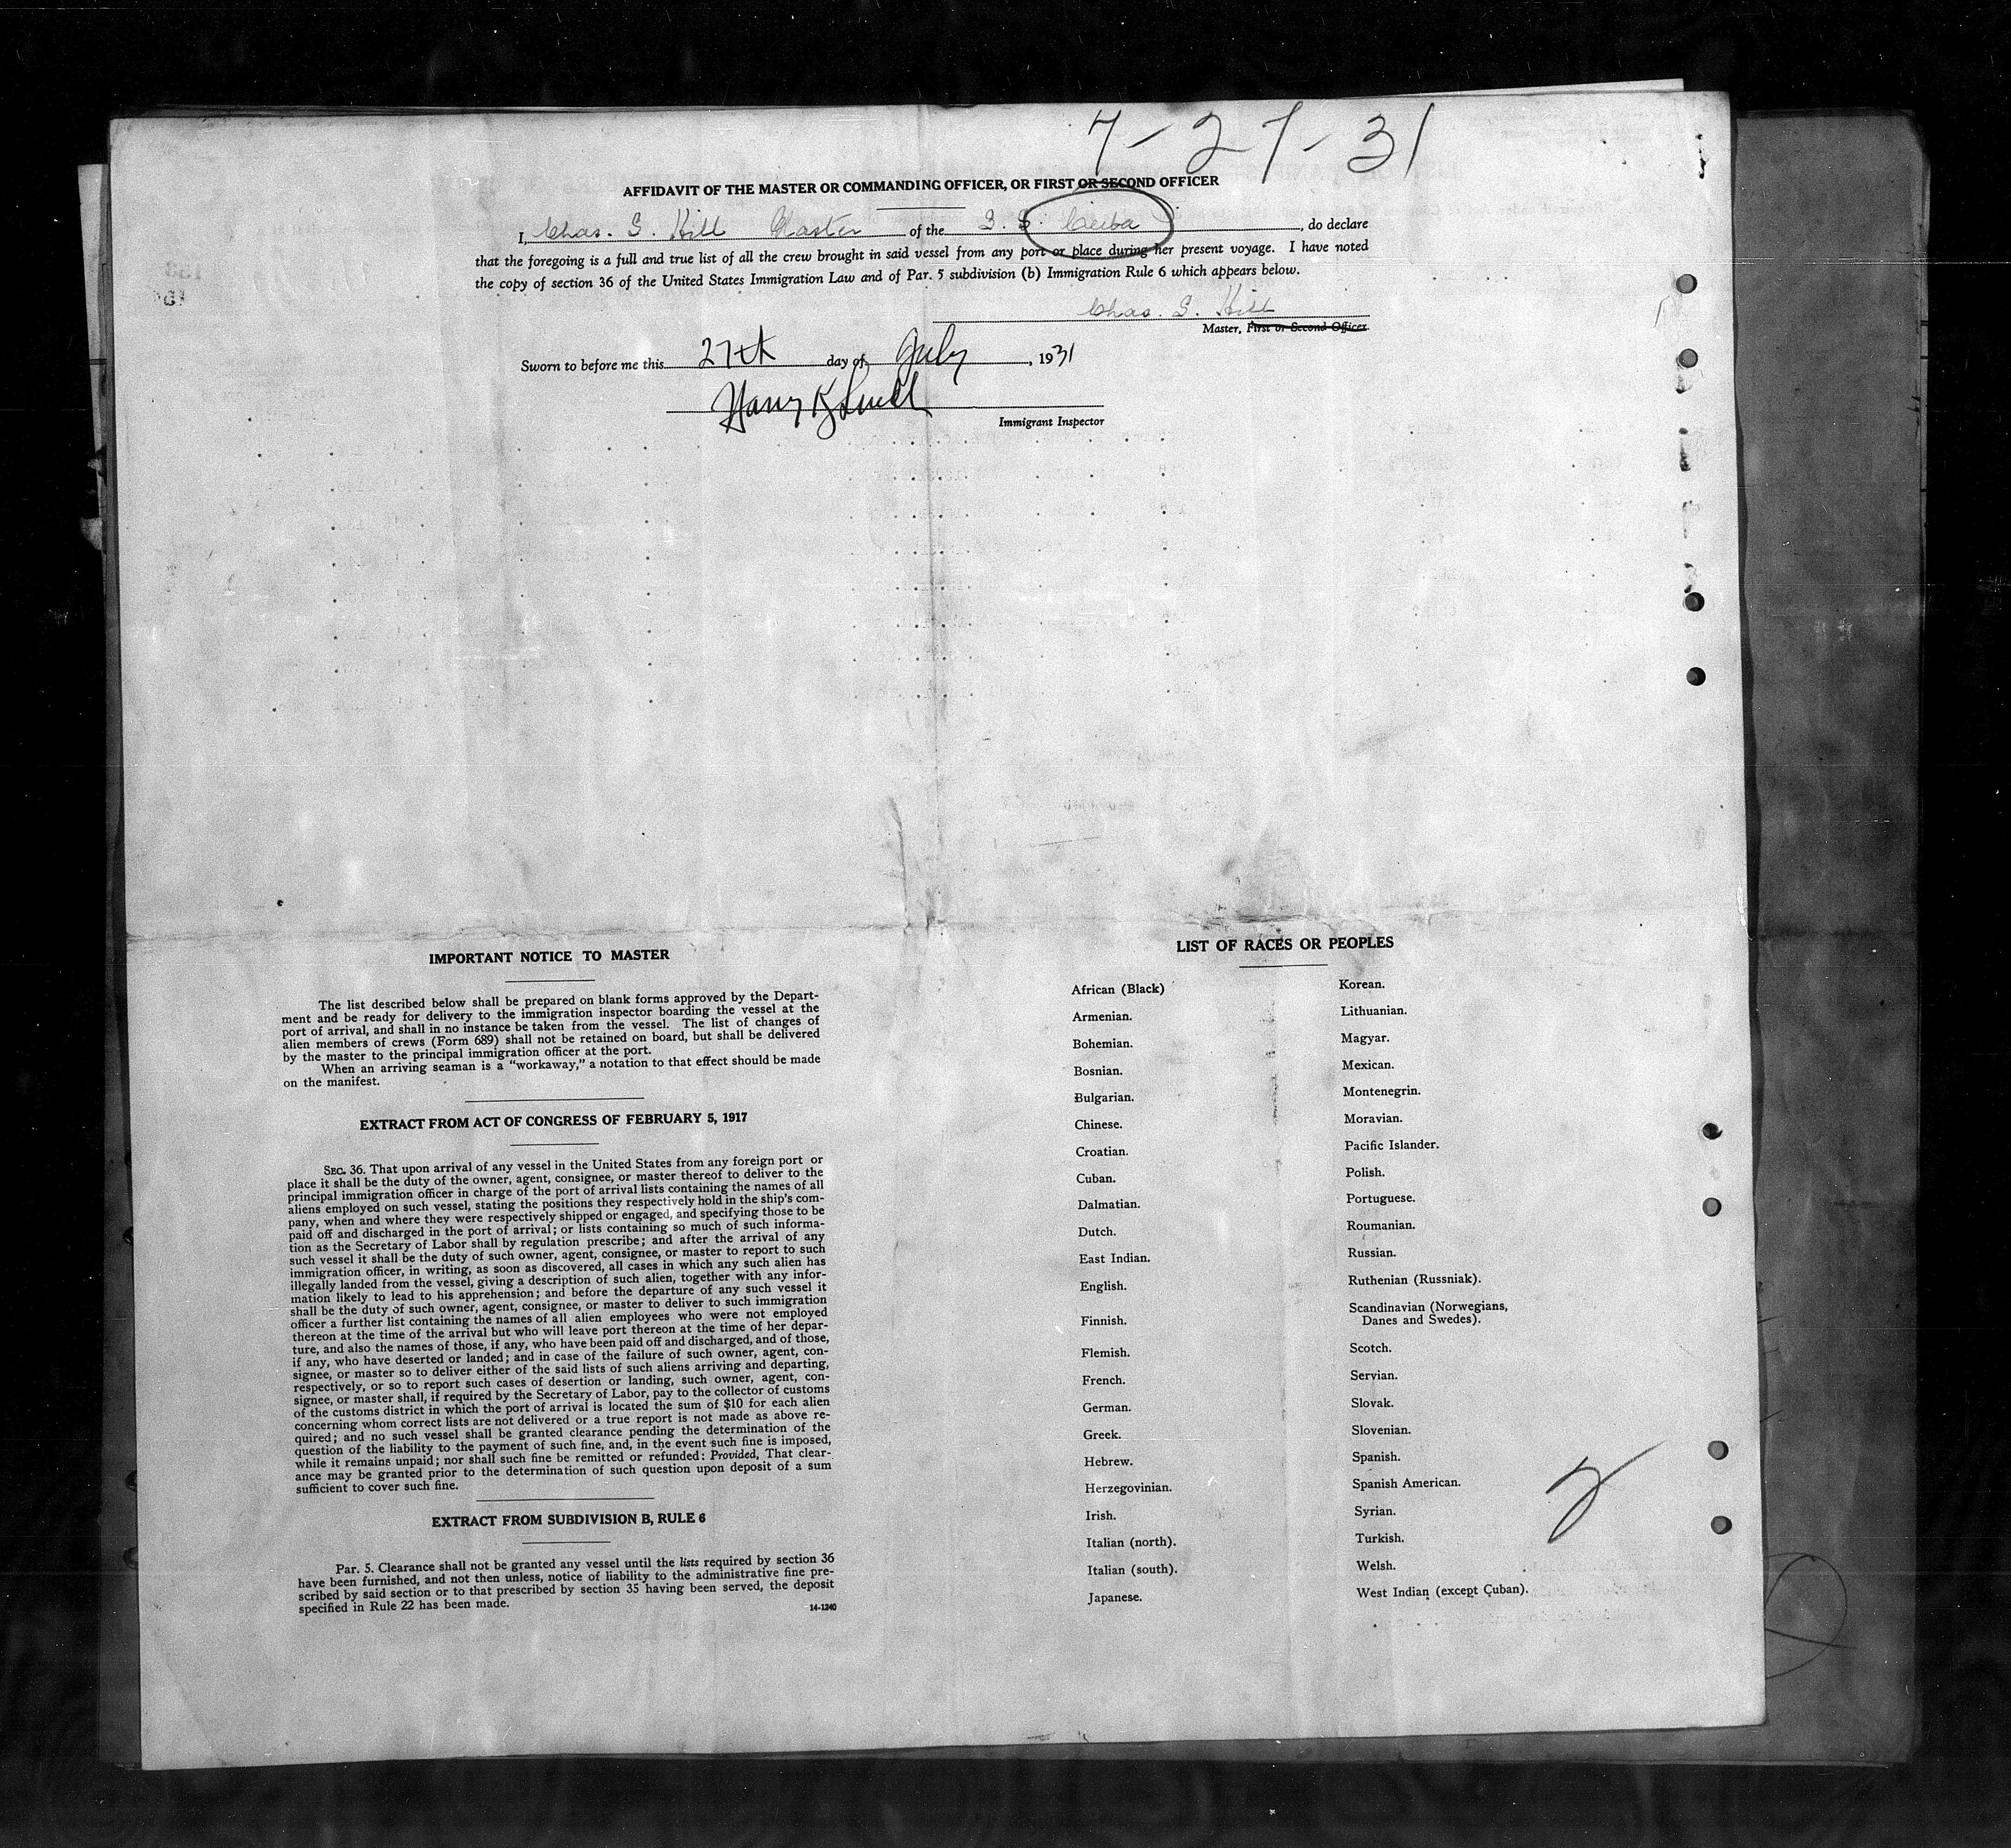 7-27-31
AFFIDAVIT OF THE MASTER OR COMMANDING OFFICER, OR FIRST OR SECOND OFFICER
I, Chas. G. Hill Master of the S. S. Ceiba, do declare
that the foregoing is a full and true list of all the crew brought in said vessel from any port or place during her present voyage. I have noted
the copy of section 36 of the United States Immigration Law and of Par. 5 subdivision (b) Immigration Rule 6 which appears below.
Chas. G. Hill
Master, First or Second Officer
Sworn to before me this 27th day of July, 1931
Harry
Immigrant Inspector
IMPORTANT NOTICE TO MASTER
The list described below shall be prepared on blank forms approved by the Depart-
ment and be ready for delivery to the immigration inspector boarding the vessel at the
port of arrival, and shall in no instance be taken from the vessel. The list of changes of
alien members of crews (Form 689) shall not be retained on board, but shall be delivered
by the master to the principal immigration officer at the port.
When an arriving seaman is a "workaway," a notation to that effect should be made
on the manifest.
EXTRACT FROM ACT OF CONGRESS OF FEBRUARY 5, 1917
SEC. 36. That upon arrival of any vessel in the United States from any foreign port or
place it shall be the duty of the owner, agent, consignee, or master thereof to deliver to the
principal immigration officer in charge of the port of arrival lists containing the names of all
aliens employed on such vessel, stating the positions they respectively hold in the ship's com-
pany, when and where they were respectively shipped or engaged, and specifying those to be
paid off and discharged in the port of arrival; or lists containing so much of such informa-
tion as the Secretary of Labor shall by regulation prescribe; and after the arrival of any
such vessel it shall be the duty of such owner, agent, consignee, or master to report to such
immigration officer, in writing, as soon as discovered, all cases in which any such alien has
illegally landed from the vessel, giving a description of such alien, together with any infor-
mation likely to lead to his apprehension; and before the departure of any such vessel it
shall be the duty of such owner, agent, consignee, or master to deliver to such immigration
officer a further list containing the names of all alien employees who were not employed
thereon at the time of the arrival but who will leave port thereon at the time of her depar-
ture, and also the names of those, if any, who have been paid off and discharged, and of those,
if any, who have deserted or landed; and in case of the failure of such owner, agent, con-
signee, or master so to deliver either of the said lists of such aliens arriving and departing,
respectively, or so to report such cases of desertion or landing, such owner, agent, con-
signee, or master shall, if required by the Secretary of Labor, pay to the collector of customs
of the customs district in which the port of arrival is located the sum of $10 for each alien
concerning whom correct lists are not delivered or a true report is not made as above re-
quired; and no such vessel shall be granted clearance pending the determination of the
question of the liability to the payment of such fine, and, in the event such fine is imposed,
while it remains unpaid; nor shall such fine be remitted or refunded: Provided, That clear-
ance may be granted prior to the determination of such question upon deposit of a sum
sufficient to cover such fine.
EXTRACT FROM SUBDIVISION B, RULE 6
Par. 5. Clearance shall not be granted any vessel until the lists required by section 36
have been furnished, and not then unless, notice of liability to the administrative fine pre-
scribed by said section or to that prescribed by section 35 having been served, the deposit
specified in Rule 22 has been made.
14-1240
LIST OF RACES OR PEOPLES
African (Black)
Armenian.
Bohemian.
Bosnian.
Bulgarian.
Chinese.
Croatian.
Cuban.
Dalmatian.
Dutch.
East Indian.
English.
Finnish.
Flemish.
French.
German.
Greek.
Hebrew.
Herzegovinian.
Irish.
Italian (north).
Italian (south).
Japanese.
Korean.
Lithuanian.
Magyar.
Mexican.
Montenegrin.
Moravian.
Pacific Islander.
Polish.
Portuguese.
Roumanian.
Russian.
Ruthenian (Russniak).
Scandinavian (Norwegians,
Danes and Swedes).
Scotch.
Servian.
Slovak.
Slovenian.
Spanish.
Spanish American.
Syrian.
Turkish.
Welsh.
West Indian (except Cuban).
2